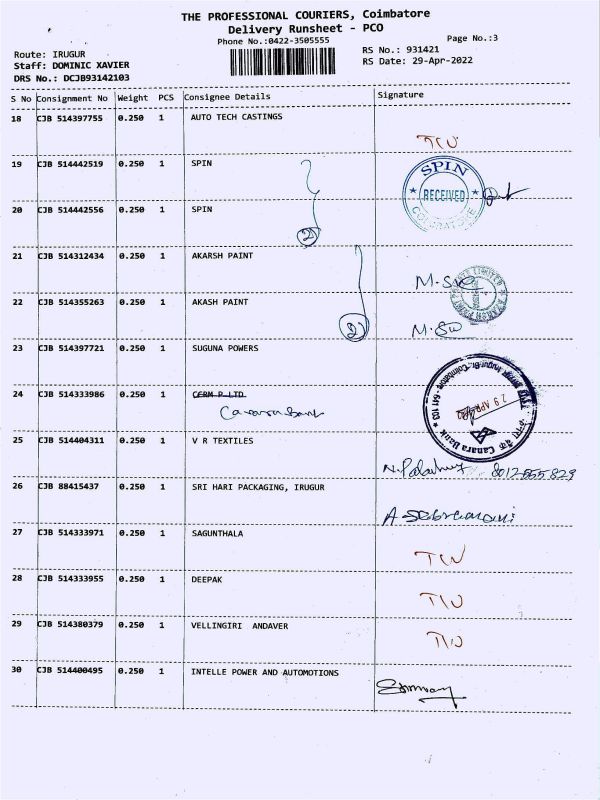 THE PROFESSIONAL COURIERS, Coimbatore
Delivery Runsheet - PCO
Phone No.:0422-3505555
Page No.:3
Route: IRUGUR
RS No.: 931421
Staff: DOMINIC XAVIER
RS Date: 29-Apr-2022
DRS No.: DCJB93142103
S No Consignment No Weight PCS Consignee Details Signature
18 CJB 514397755 0.250 1 AUTO TECH CASTINGS
19 CJB 514442519 0.250 1 SPIN
SPIN
RECEIVED
COIMBATORE
20 CJB 514442556 0.250 1 SPIN
2
21 CJB 514312434 0.250 1 AKARSH PAINT
22 CJB 514355263 0.250 1 AKASH PAINT
2
23 CJB 514397721 0.250 1 SUGUNA POWERS
24 CJB 514333986 0.250 1 CERM P LTD
Canara Bank
Canara Bank
Coimbatore - 641 103
29 APR
25 CJB 514404311 0.250 1 V R TEXTILES
8012555829
26 CJB 88415437 0.250 1 SRI HARI PACKAGING, IRUGUR
27 CJB 514333971 0.250 1 SAGUNTHALA
28 CJB 514333955 0.250 1 DEEPAK
29 CJB 514380379 0.250 1 VELLINGIRI ANDAVER
30 CJB 514400495 0.250 1 INTELLE POWER AND AUTOMOTIONS